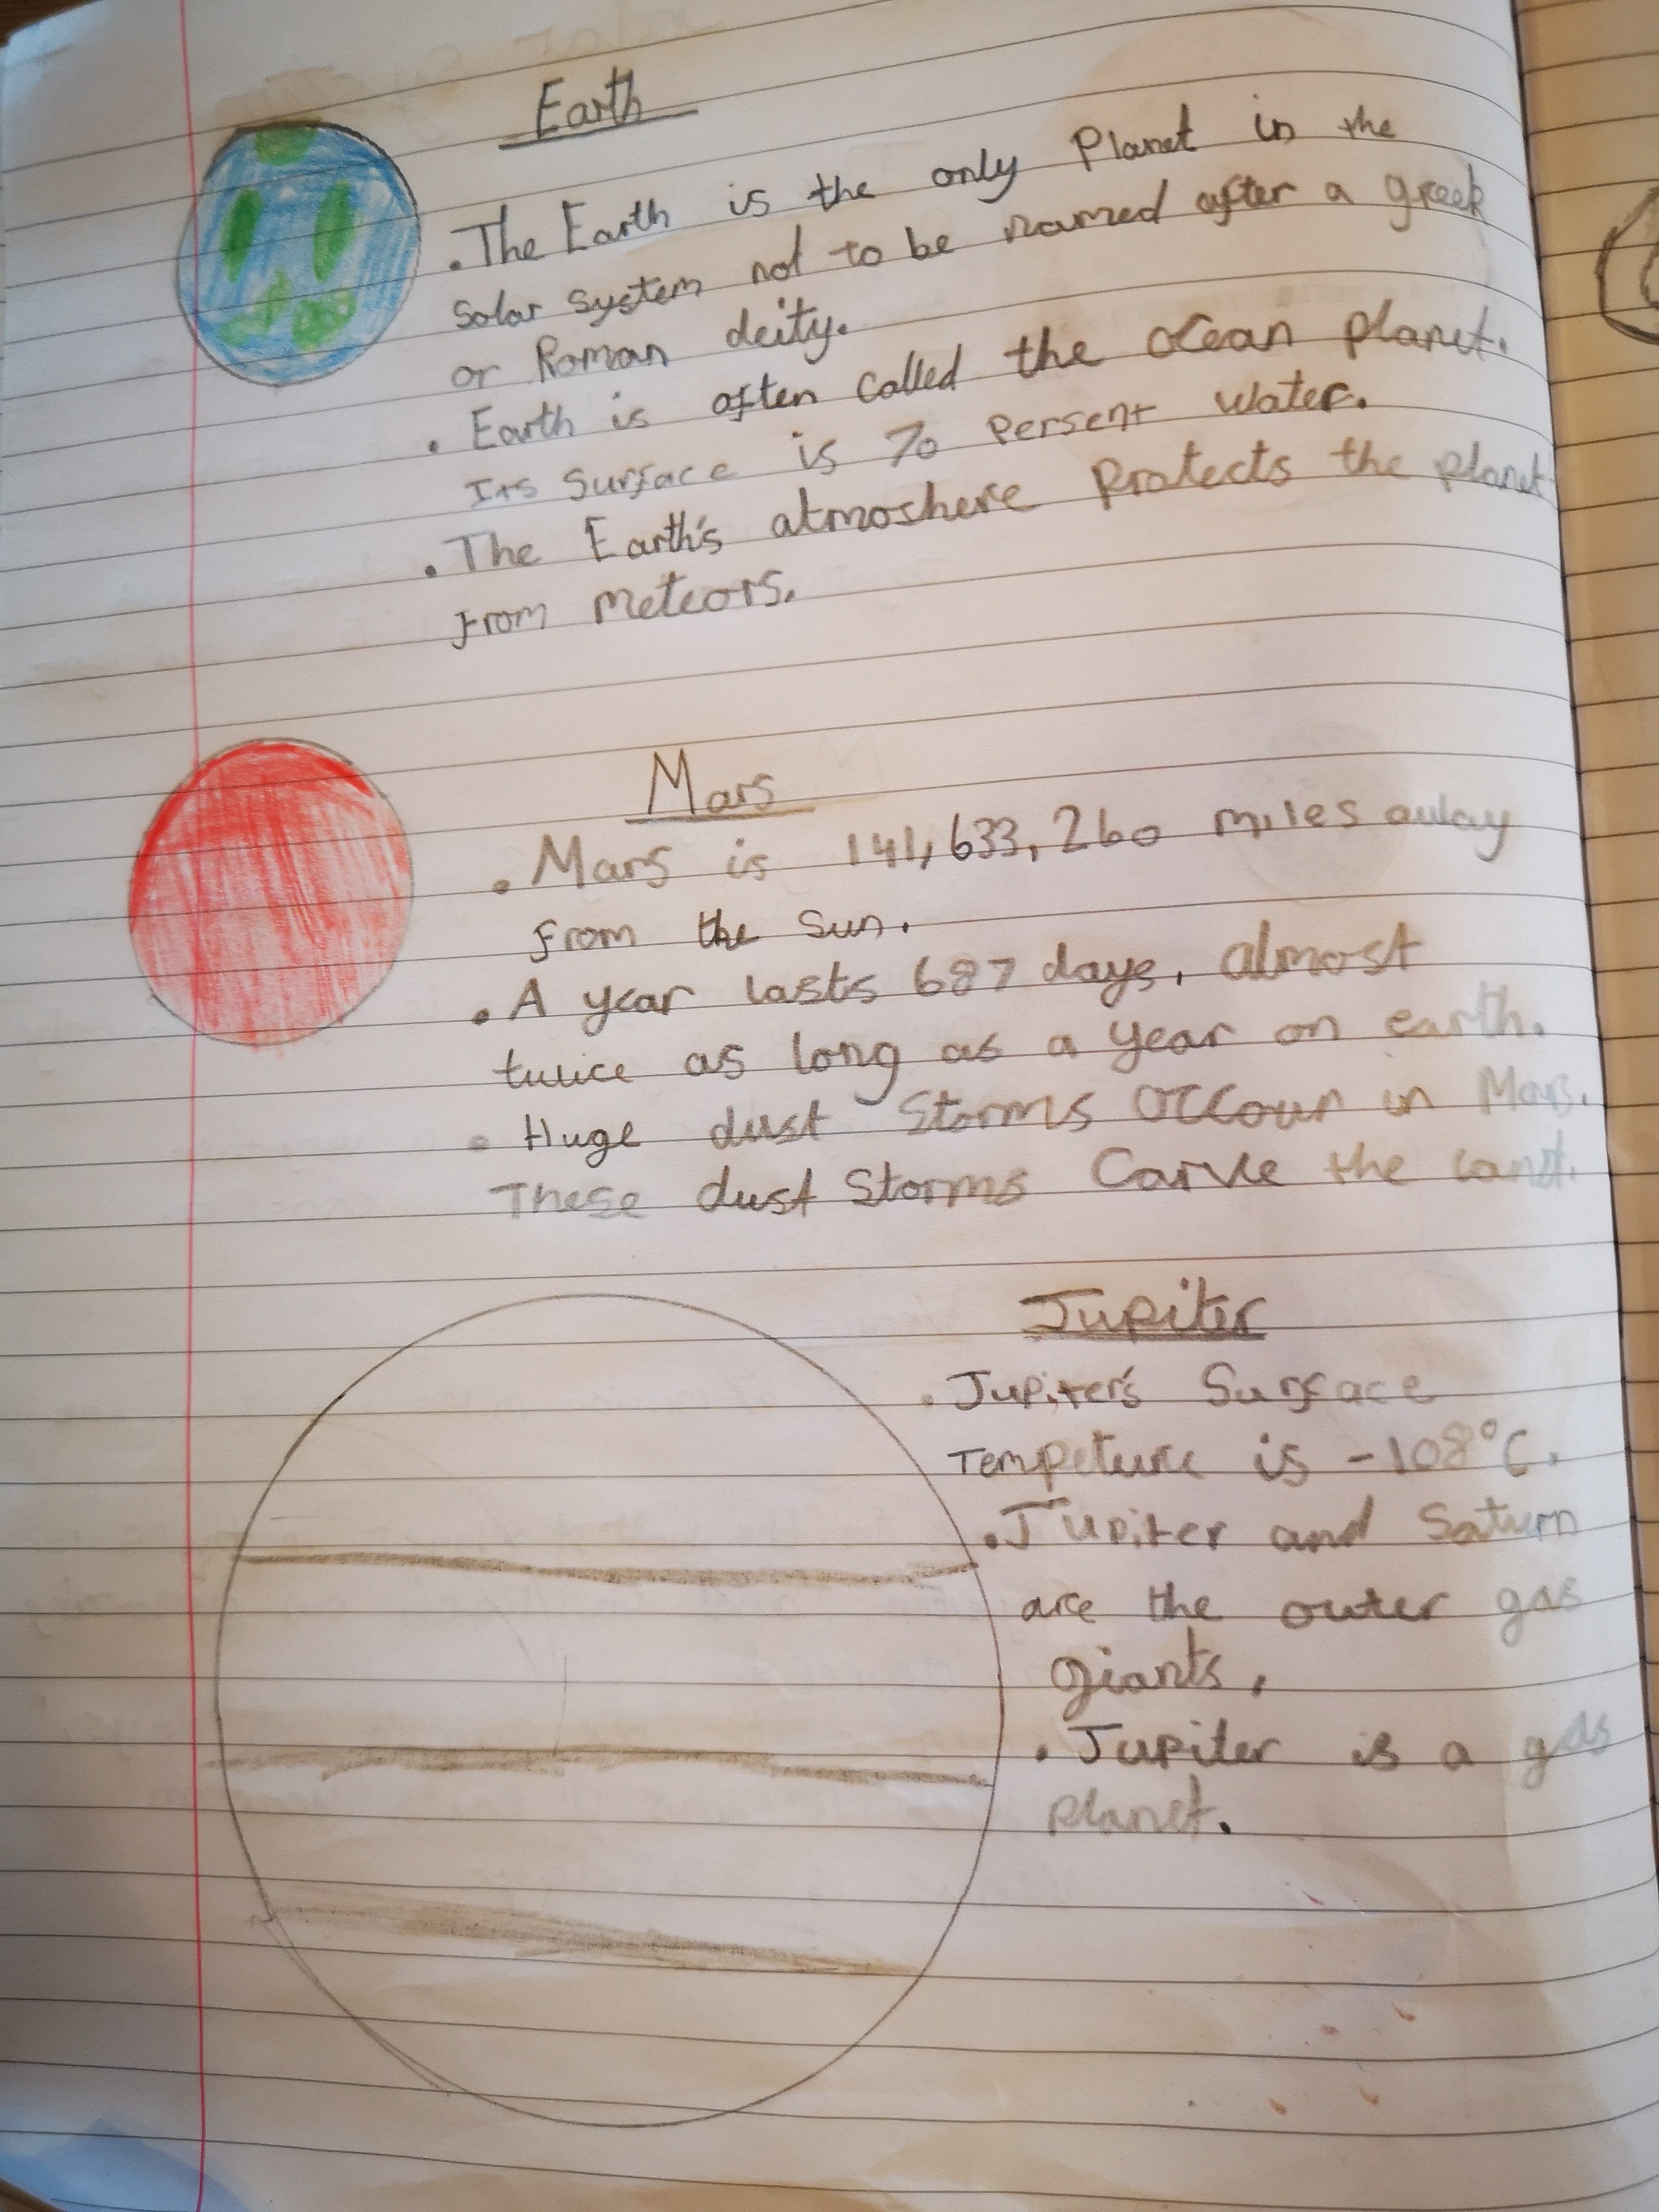 Earth
. The Earth is the only Planet in the
solar system not to be named after a greek
or Roman deity.
. Earth is often called the ocean planet.
Its surface is 70 persent water.
. The Earth's atmoshere protects the planet
from meteors.
Mars
. Mars is 141,633,260 miles away
from the sun.
. A year lasts 687 days, almost
twice as long as a year on earth.
. Huge dust storms occour in Mars.
These dust storms carve the land.
Jupiter
. Jupiter's surface
Tempeture is -108°C.
. Jupiter and Saturn
are the outer gas
giants.
. Jupiter is a gas
planet.